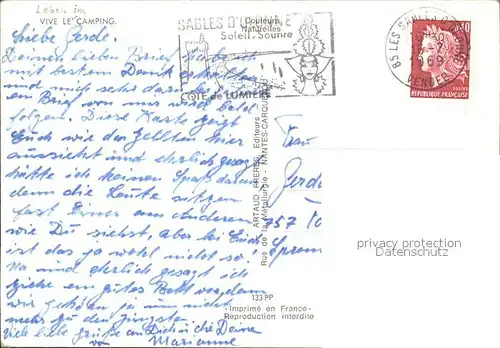 Leben im
VIVE LE CAMPING.
Couleurs
Naturelles
SABLES D'OLONNE
Soleil, Sourire
CÔTE de LUMIÈRE
85 LES SABLES D'OLONNE
VENDÉE
1969
0,40
POSTES
RÉPUBLIQUE FRANÇAISE
Liebe Gerde.
Deinen lieben Brief habe ich
mit bestem Dank erhalten
und mich sehr darüber
ein Brief von mir wird bald
folgen. Diese Karte zeigt
Euch wie der Zelten hier
aussieht und ehrlich gesagt
hätte ich keinen Spaß daran
denn die Leute sitzen
fast Einer am Anderen
wie Du siehst, aber bei Euch
ist das ja wohl nicht so.
Na und ehrlich gesagt ich
ziehe ein gutes Bett vor, denn
wir gehören ja nun nicht
mehr zu den Jüngsten.
Viele liebe Grüße an Dich die Deine
von Marianne
ARTAUD FRÈRES, Editeurs
Rue de la Métallurgie - NANTES-CARQUEFOU
133 PP
-Imprimé en France-
Reproduction interdite
Frau
Gerde
757
Sprem
privacy protection
Datenschutz